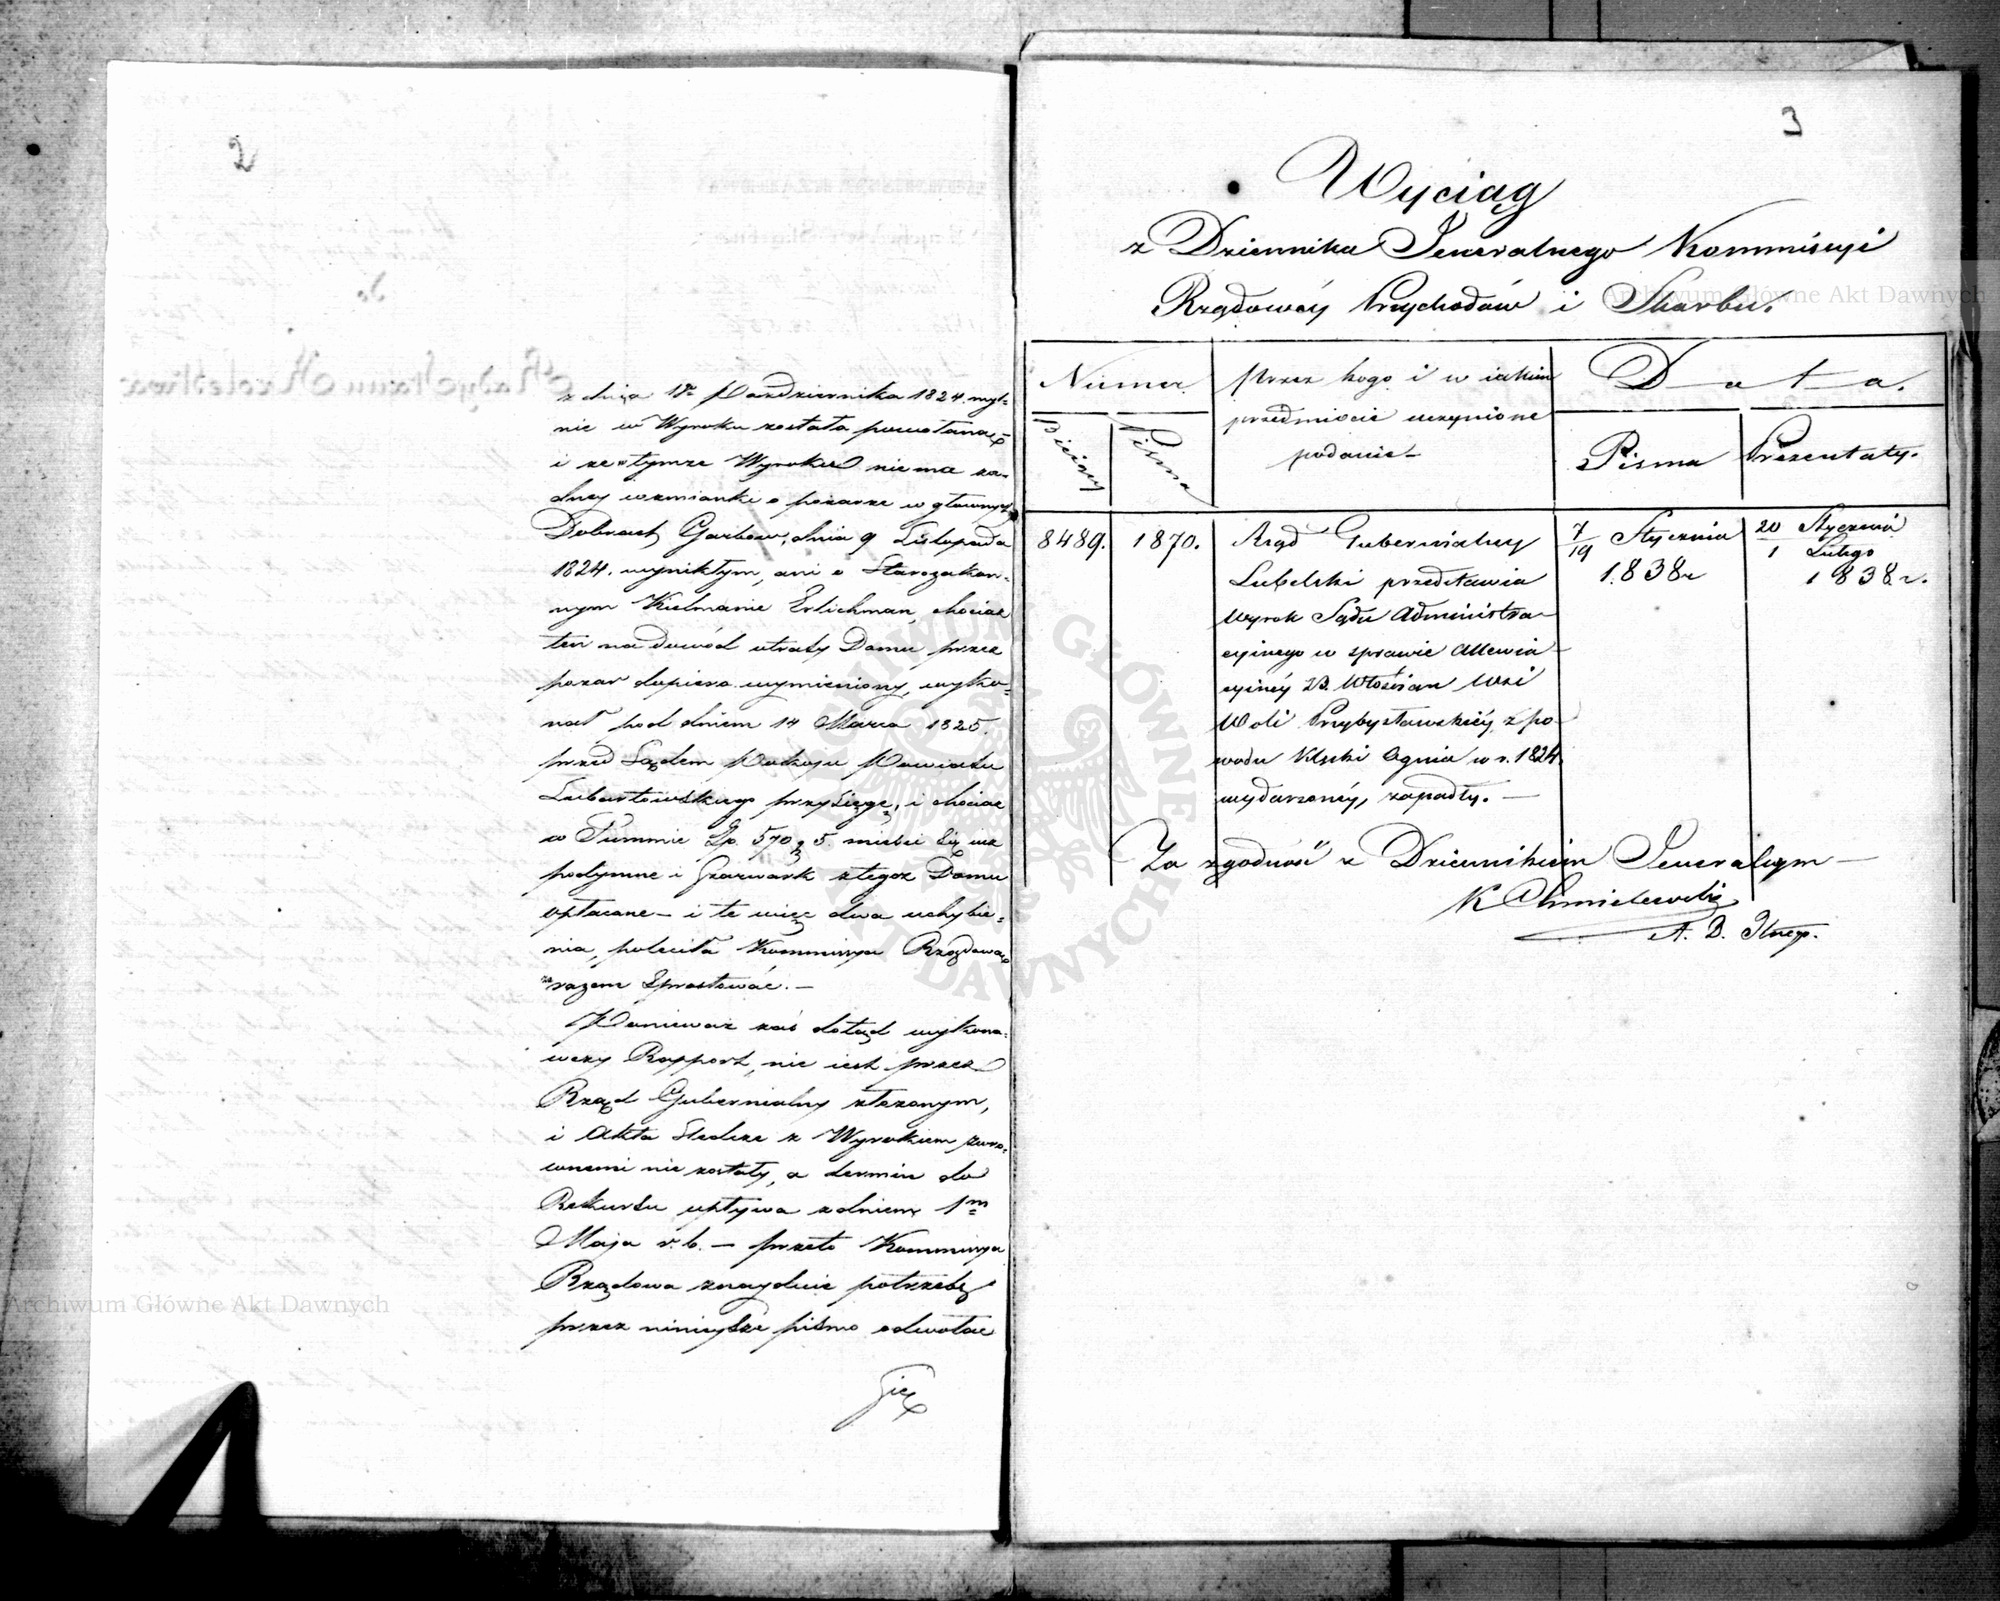 2
z dnia 18 Października 1824. myl=
nie w Wyroku została powołana
i że w tymże Wyroku niema ża=
dney wzmianki o pożarze w głównych
Dobrach Garbow, dnia 9 Listopada
1824. wynikłym, ani o Starozakon=
nym Kielmanie Erlichman, chociaż
ten na dowód utraty Domu przez
pożar dopiero wymieniony, wyko=
nał pod dniem 14 Marca 1825.
przed Sądem Pokoju Powiatu
Lubartowskiego przysięgę, i chociaż
w Summie Zp. 570 g 5. mieści się iuż
podymne i Szarwark z tegoż Domu
opłacane – i te więc dwa uchybie=
nia, poleciła Kommissya Rządowa
zarazem Sprostować. –
Ponieważ zaś dotąd wykona=
wczy Rapport, nie iest przez
Rząd Gubernialny złożonym,
i Akta Śledcze z Wyrokiem zwró=
conemi nie zostały, a termin do
Rekursu upływa z dniem 1m
Maja r. b. – przeto Kommissya
Rządowa znayduie potrzebę
przez ninieysze pismo odwołać
się
3
Wyciąg
z Dziennika Jeneralnego Kommissyi
Rządowéy Przychodów i Skarbu.
Numer
Przez kogo i w iakim
przedmiocie uczynione
podanie –
Data.
Bieżący
Pisma
Pisma
Prezentaty.
8489.
1870.
Rząd Gubernialny
Lubelski przedstawia
Wyrok Sądu Administra=
cyinego w sprawie Allewia=
cyinéy 23. Włościan Wsi
Woli Przybysławskiéy z po=
wodu Klęski Ognia w r. 1824
wydarzonéy, zapadły. –
7/19 Stycznia
1838 r
20 Stycznia
1 Lutego
1838 r.
Za zgodność z Dziennikiem Jeneralnym –
K Chmielewski
A. D. Str.
Archiwum Główne Akt Dawnych
Archiwum Główne Akt Dawnych
ARCHIWUM GŁÓWNE AKT DAWNYCH